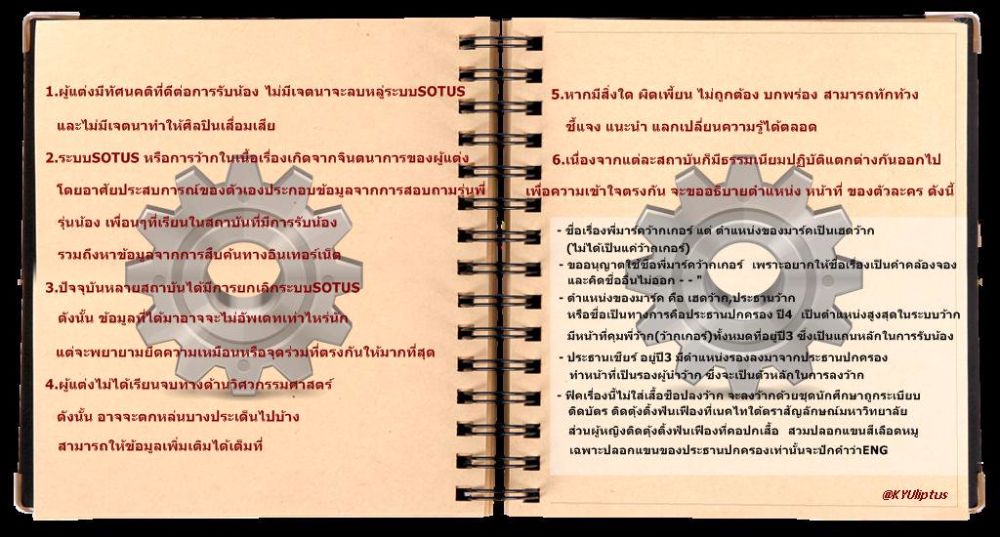 1.ผู้แต่งมีทัศนคติที่ดีต่อการรับน้อง ไม่มีเจตนาจะลบหลู่ระบบSOTUS
และไม่มีเจตนาทำให้ศิลปินเสื่อมเสีย
2.ระบบSOTUS หรือการว้ากในเนื้อเรื่องเกิดจากจินตนาการของผู้แต่ง
โดยอาศัยประสบการณ์ของตัวเองประกอบข้อมูลจากการสอบถามรุ่นพี่
รุ่นน้อง เพื่อนๆที่เรียนในสถาบันที่มีการรับน้อง
รวมถึงหาข้อมูลจากการสืบค้นทางอินเทอร์เน็ต
3.ปัจจุบันหลายสถาบันได้มีการยกเลิกระบบSOTUS
ดังนั้น ข้อมูลที่ได้มาอาจจะไม่อัพเดทเท่าไหร่นัก
แต่จะพยายามยึดความเหมือนหรือจุดร่วมที่ตรงกันให้มากที่สุด
4.ผู้แต่งไม่ได้เรียนจบทางด้านวิศวกรรมศาสตร์
ดังนั้น อาจจะตกหล่นบางประเด็นไปบ้าง
สามารถให้ข้อมูลเพิ่มเติมได้เต็มที่
5.หากมีสิ่งใด ผิดเพี้ยน ไม่ถูกต้อง บกพร่อง สามารถทักท้วง
ชี้แจง แนะนำ แลกเปลี่ยนความรู้ได้ตลอด
6.เนื่องจากแต่ละสถาบันก็มีธรรมเนียมปฏิบัติแตกต่างกันออกไป
เพื่อความเข้าใจตรงกัน จะขออธิบายตำแหน่ง หน้าที่ ของตัวละคร ดังนี้
- ชื่อเรื่องพี่มาร์คว้ากเกอร์ แต่ ตำแหน่งของมาร์คเป็นเฮดว้าก
(ไม่ได้เป็นแค่ว้ากเกอร์)
- ขออนุญาตใช้ชื่อพี่มาร์คว้ากเกอร์ เพราะอยากให้ชื่อเรื่องเป็นคำคล้องจอง
และคิดชื่ออื่นไม่ออก - - "
- ตำแหน่งของมาร์ค คือ เฮดว้าก,ประธานว้าก
หรือชื่อเป็นทางการคือประธานปกครอง ปี4 เป็นตำแหน่งสูงสุดในระบบว้าก
มีหน้าที่คุมพี่ว้าก(ว้ากเกอร์)ทั้งหมดที่อยู่ปี3 ซึ่งเป็นแกนหลักในการรับน้อง
- ประธานเชียร์ อยู่ปี3 มีตำแหน่งรองลงมาจากประธานปกครอง
ทำหน้าที่เป็นรองผู้นำว้าก ซึ่งจะเป็นตัวหลักในการลงว้าก
- ฟิคเรื่องนี้ไม่ใส่เสื้อช็อปลงว้าก จะลงว้ากด้วยชุดนักศึกษาถูกระเบียบ
ติดบัตร ติดตุ้งติ้งฟันเฟืองที่เนคไทใต้ตราสัญลักษณ์มหาวิทยาลัย
ส่วนผู้หญิงติดตุ้งติ้งฟันเฟืองที่คอปกเสื้อ สวมปลอกแขนสีเลือดหมู
เฉพาะปลอกแขนของประธานปกครองเท่านั้นจะปักคำว่าENG
@KYUliptus